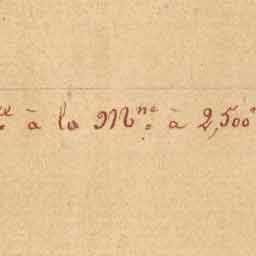 à la Mne à 2,500